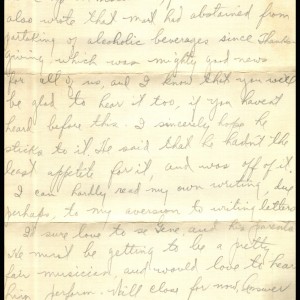 also write that mail had abstained from
partaking of alcoholic beverages since Thanks-
giving which was mighty good news
for all of us, and I know that you will
be glad to hear it too, if you haven't
heard before this. I sincerely hope he
sticks to it. He said that he hadn't the
least appetite for it, and was off of it.
I can hardly read my own writing, due
perhaps, to my aversion to writing letters
I'd sure love to see Gene, and his parents
He must be getting to be a pretty
fair musician, and would love to hear
him perform. Will close for now, answer